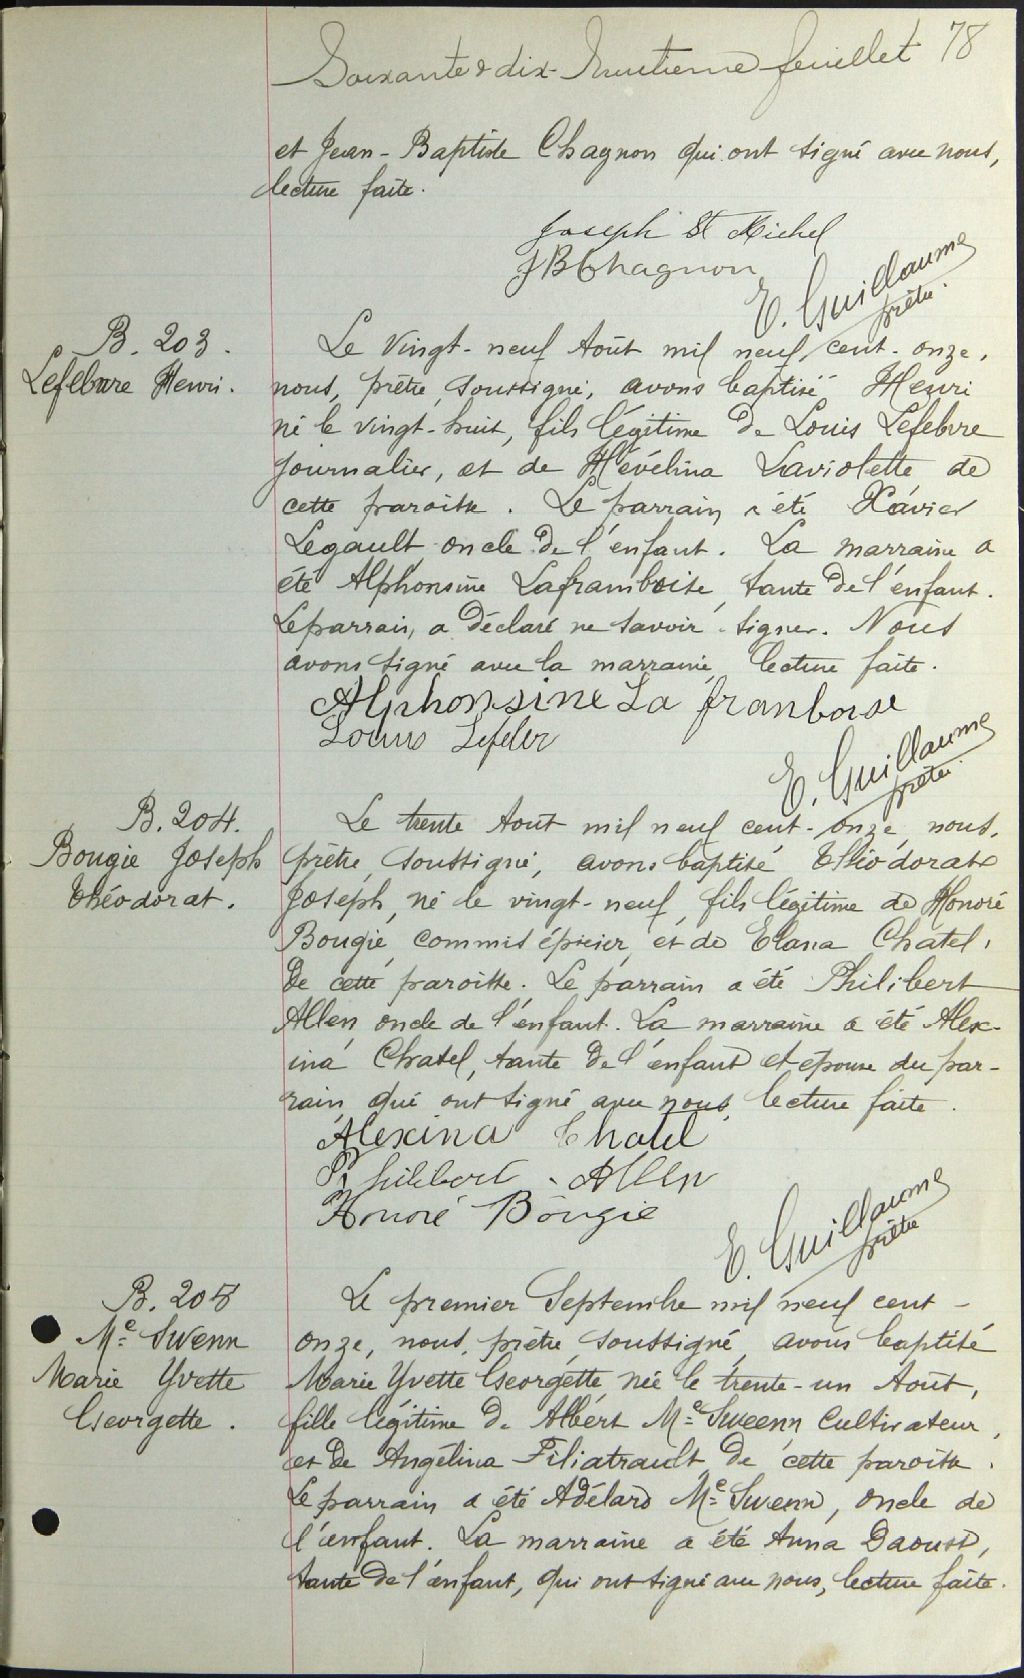 Soixante & dix-huitieme feuillet 78
et Jean-Baptiste Chagnon qui ont signé avec nous,
lecture faite.
Joseph St Michel
JBChagnon
E. Guillaume
prêtre.
B. 203.
Lefebvre Henri.
Le vingt-neuf Août mil neuf cent-onze,
nous, prêtre soussigné, avons baptisé Henri
né le vingt-huit, fils légitime de Louis Lefebvre
journalier, et de Mévélina Laviolette de
cette paroisse. Le parrain a été Xavier
Legault oncle de l'enfant. La marraine a
été Alphonsine Laframboise, tante de l'enfant.
Le parrain, a déclaré ne savoir signer. Nous
avons signé avec la marraine, lecture faite.
Alphonsine La framboise
Louis Lefebr
E. Guillaume
prêtre.
B. 204.
Bougie Joseph
Théodorat.
Le trente Août mil neuf cent-onze, nous,
prêtre soussigné, avons baptisé Théodorat
Joseph, né le vingt-neuf, fils légitime de Honoré
Bougie, commis épicier, et de Elana Chatel,
de cette paroisse. Le parrain a été Philibert
Allen, oncle de l'enfant. La marraine a été Alex-
ina Chatel, tante de l'enfant et épouse du par-
rain, qui ont signé avec nous, lecture faite.
Alexina Chatel
Philibert Allen
Honoré Bougie
E. Guillaume
prêtre
B. 205
Mc Swenn
Marie Yvette
Georgette.
Le premier Septembre mil neuf cent-
onze, nous, prêtre soussigné, avons baptisé
Marie Yvette Georgette, née le trente-un Août,
fille légitime de Albért Mc Sweenn, Cultivateur,
et de Angélina Filiatrault de cette paroisse.
Le parrain a été Adélard Mc Swenn, oncle de
l'enfant. La marraine a été Anna Daoust,
tante de l'enfant, qui ont signé avec nous, lecture faite.